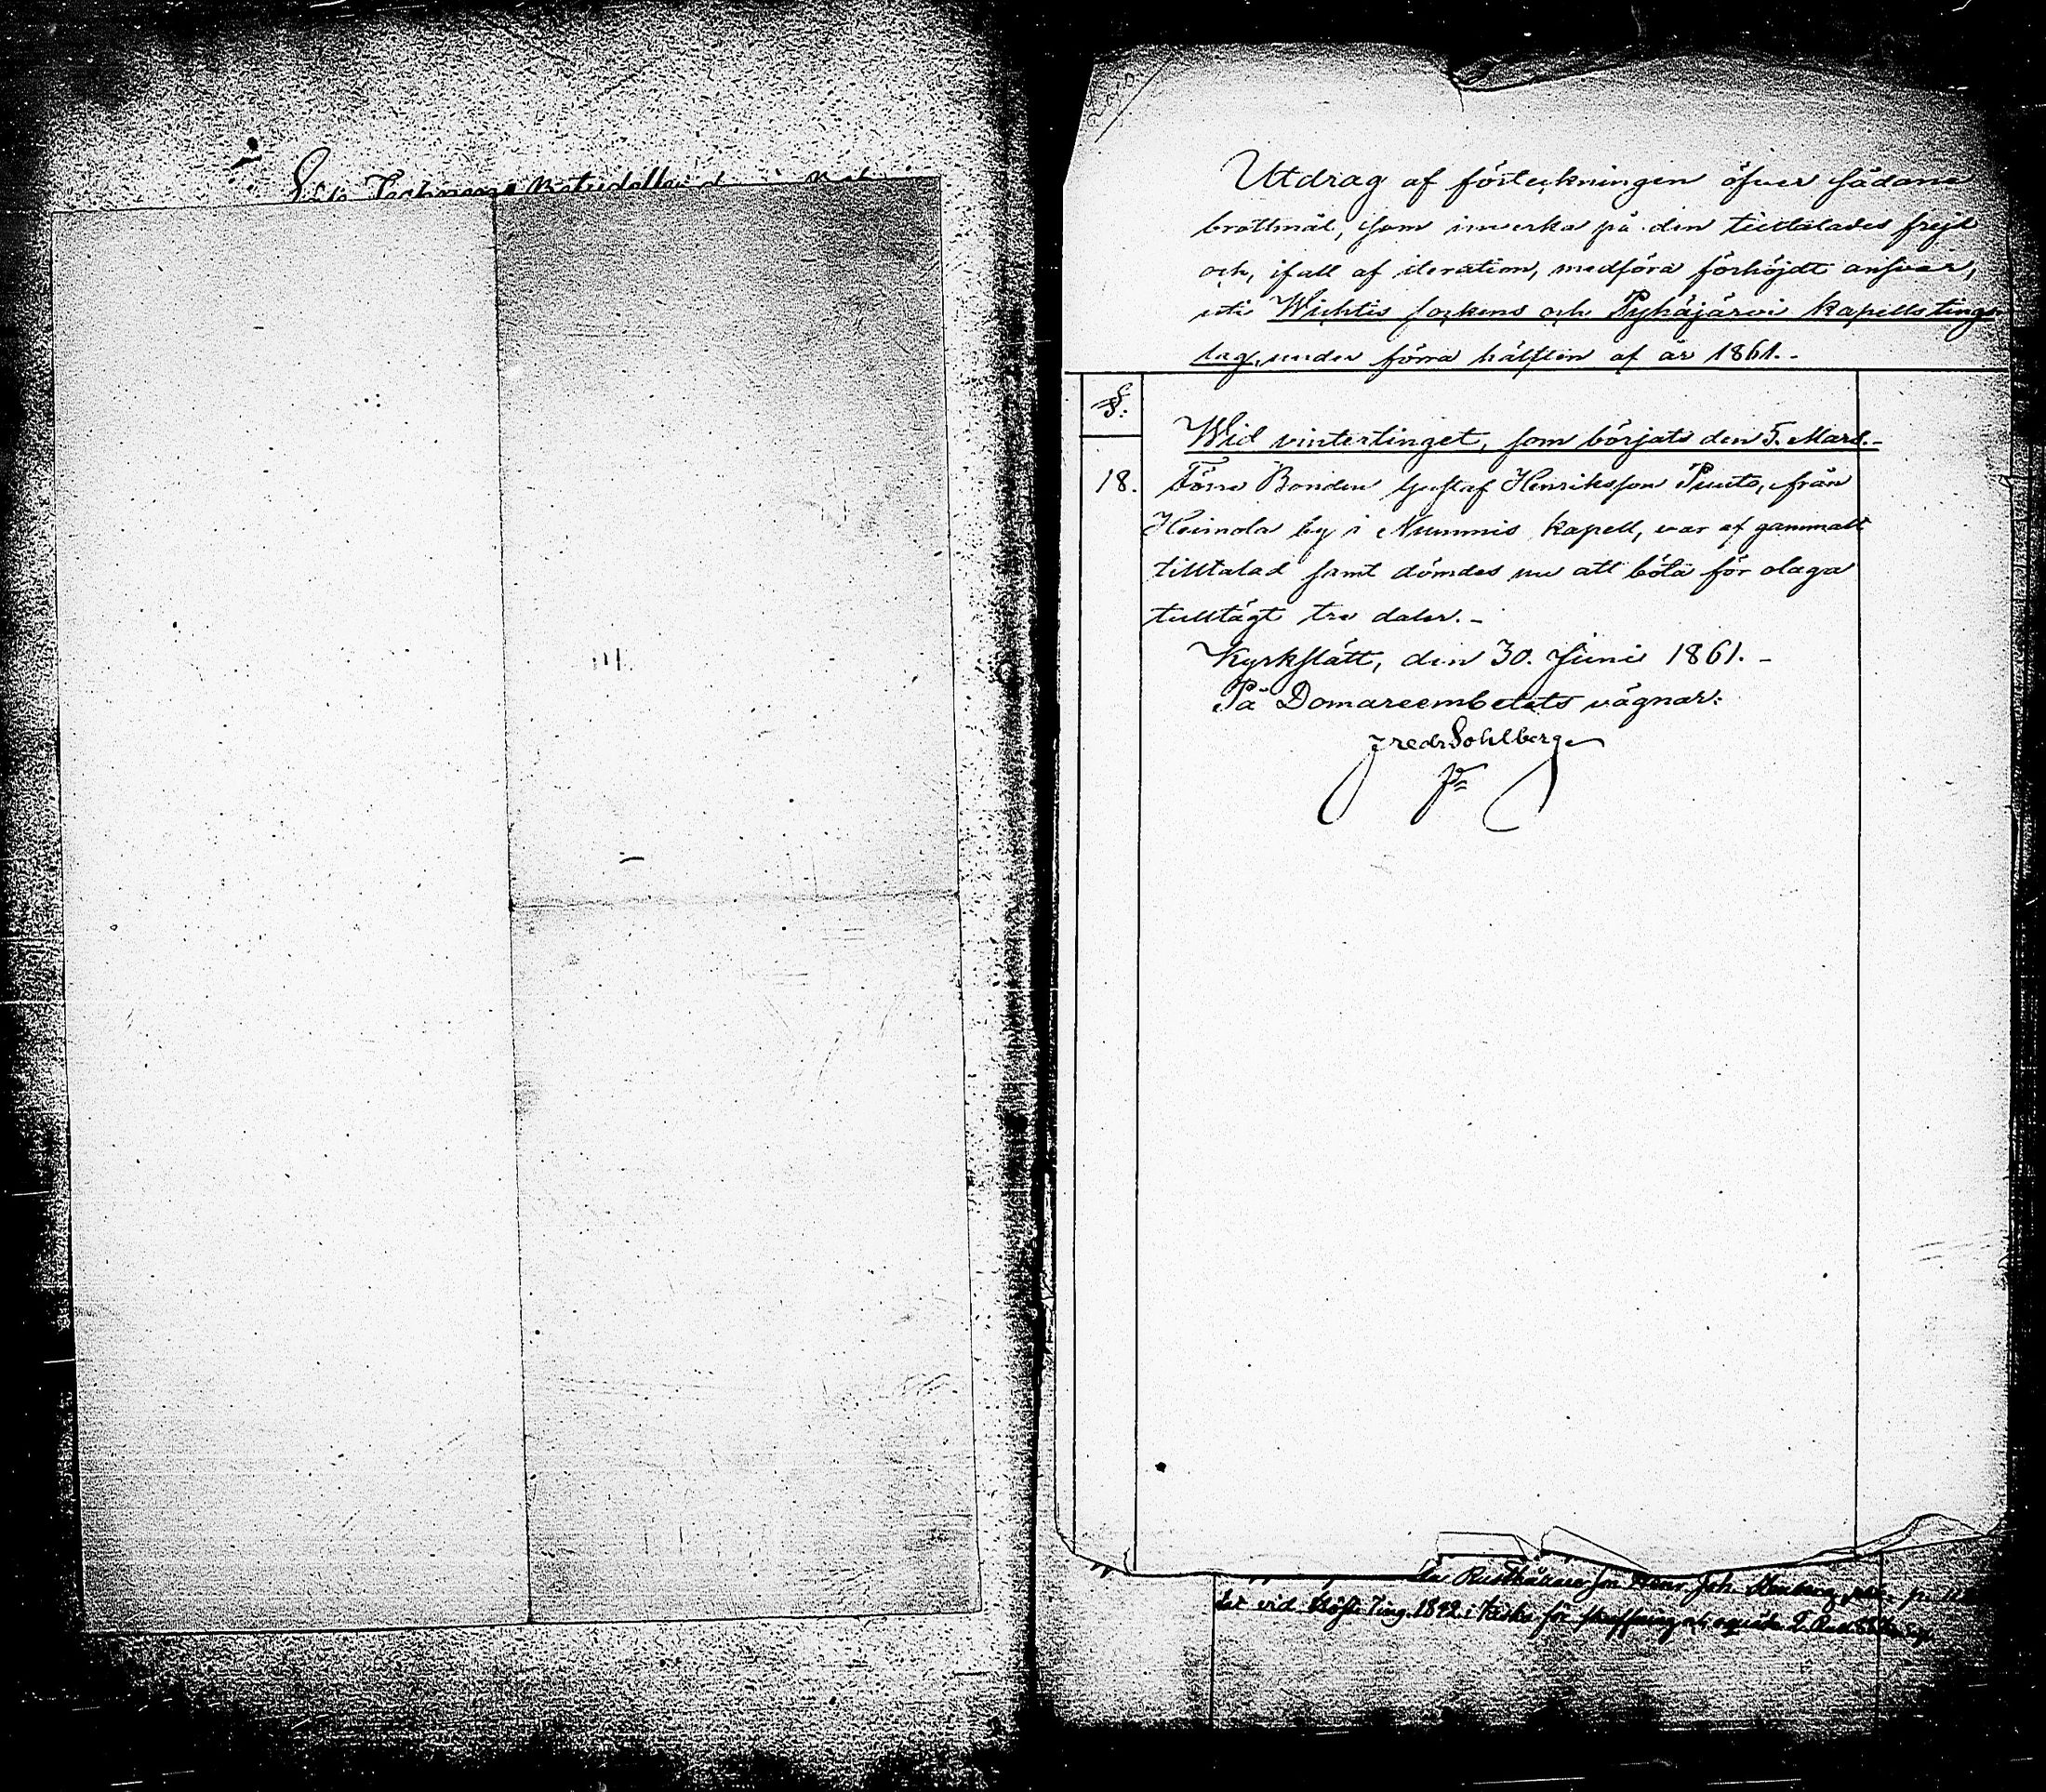 Utdrag af förteckningen öfver sådana
brottmål, som inverka på den tilltalades frejd
och, ifall af iteration, medföra förhöjdt ansvar,
uti Wichtis sockens och Pyhäjärvi kapells tings
lag, under förra hälften af år 1861.-
§:
Wid vintertinget, som börjats den 5. Mars.-
18. Förre Bonden Gustaf Henriksson Punto, från
Heimola by i Nummis kapell, var af gammalt
tilltalad samt dömdes nu att böta för olaga
tilltägt tre daler.-
Kyrkslätt, den 30. Juni 1861.-
På Domareembetets vägnar:
Fredr Sohlberg
Rusthållare son Henr. Joh.
det vid Höste Ting. 1842 i för